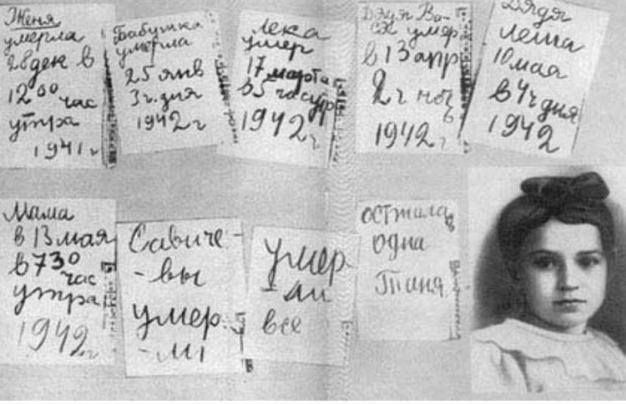 Женя
умерла
28 дек в
12 00 час
утра
1941 г
Бабушка
умерла
25 янв
3 ч. дня
1942 г
Лека
умер
17 марта
в 5 час утр
1942 г
Дядя Ва-
ся умер
в 13 апр
2 ч ноч
1942 г
Дядя
Леша
10 мая
в 4 ч дня
1942
Мама
в 13 мая
в 7 30
час
утра
1942 г
Савиче-
-вы
умер
-ли
умер
-ли
все
осталась
одна
Таня